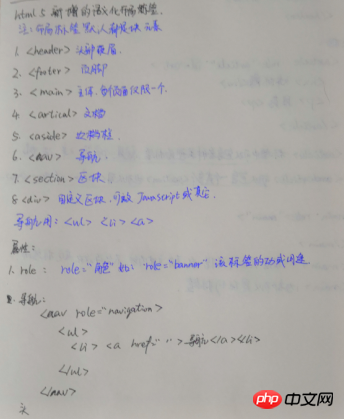 html 5 新增的语义化布局标签.
注: 布局标签默认都是块元素
1. <header> 头部页眉
2. <footer> 页脚
3. <main> 主体, 每页面仅限一个.
4. <artical> 文档
5. <aside> 边栏
6. <nav> 导航
7. <section> 区块
8. <div> 自定义区块, 可放 Javascript 或其它.
导航用: <ul> <li> <a>
属性:
1. role: role="角色" 如: role="banner" 该标签的功或用途
2. 导航:
<nav role="navigation>
<ul>
<li> <a href=" "> 导航</a></li>
</ul>
</nav>
php 中文网